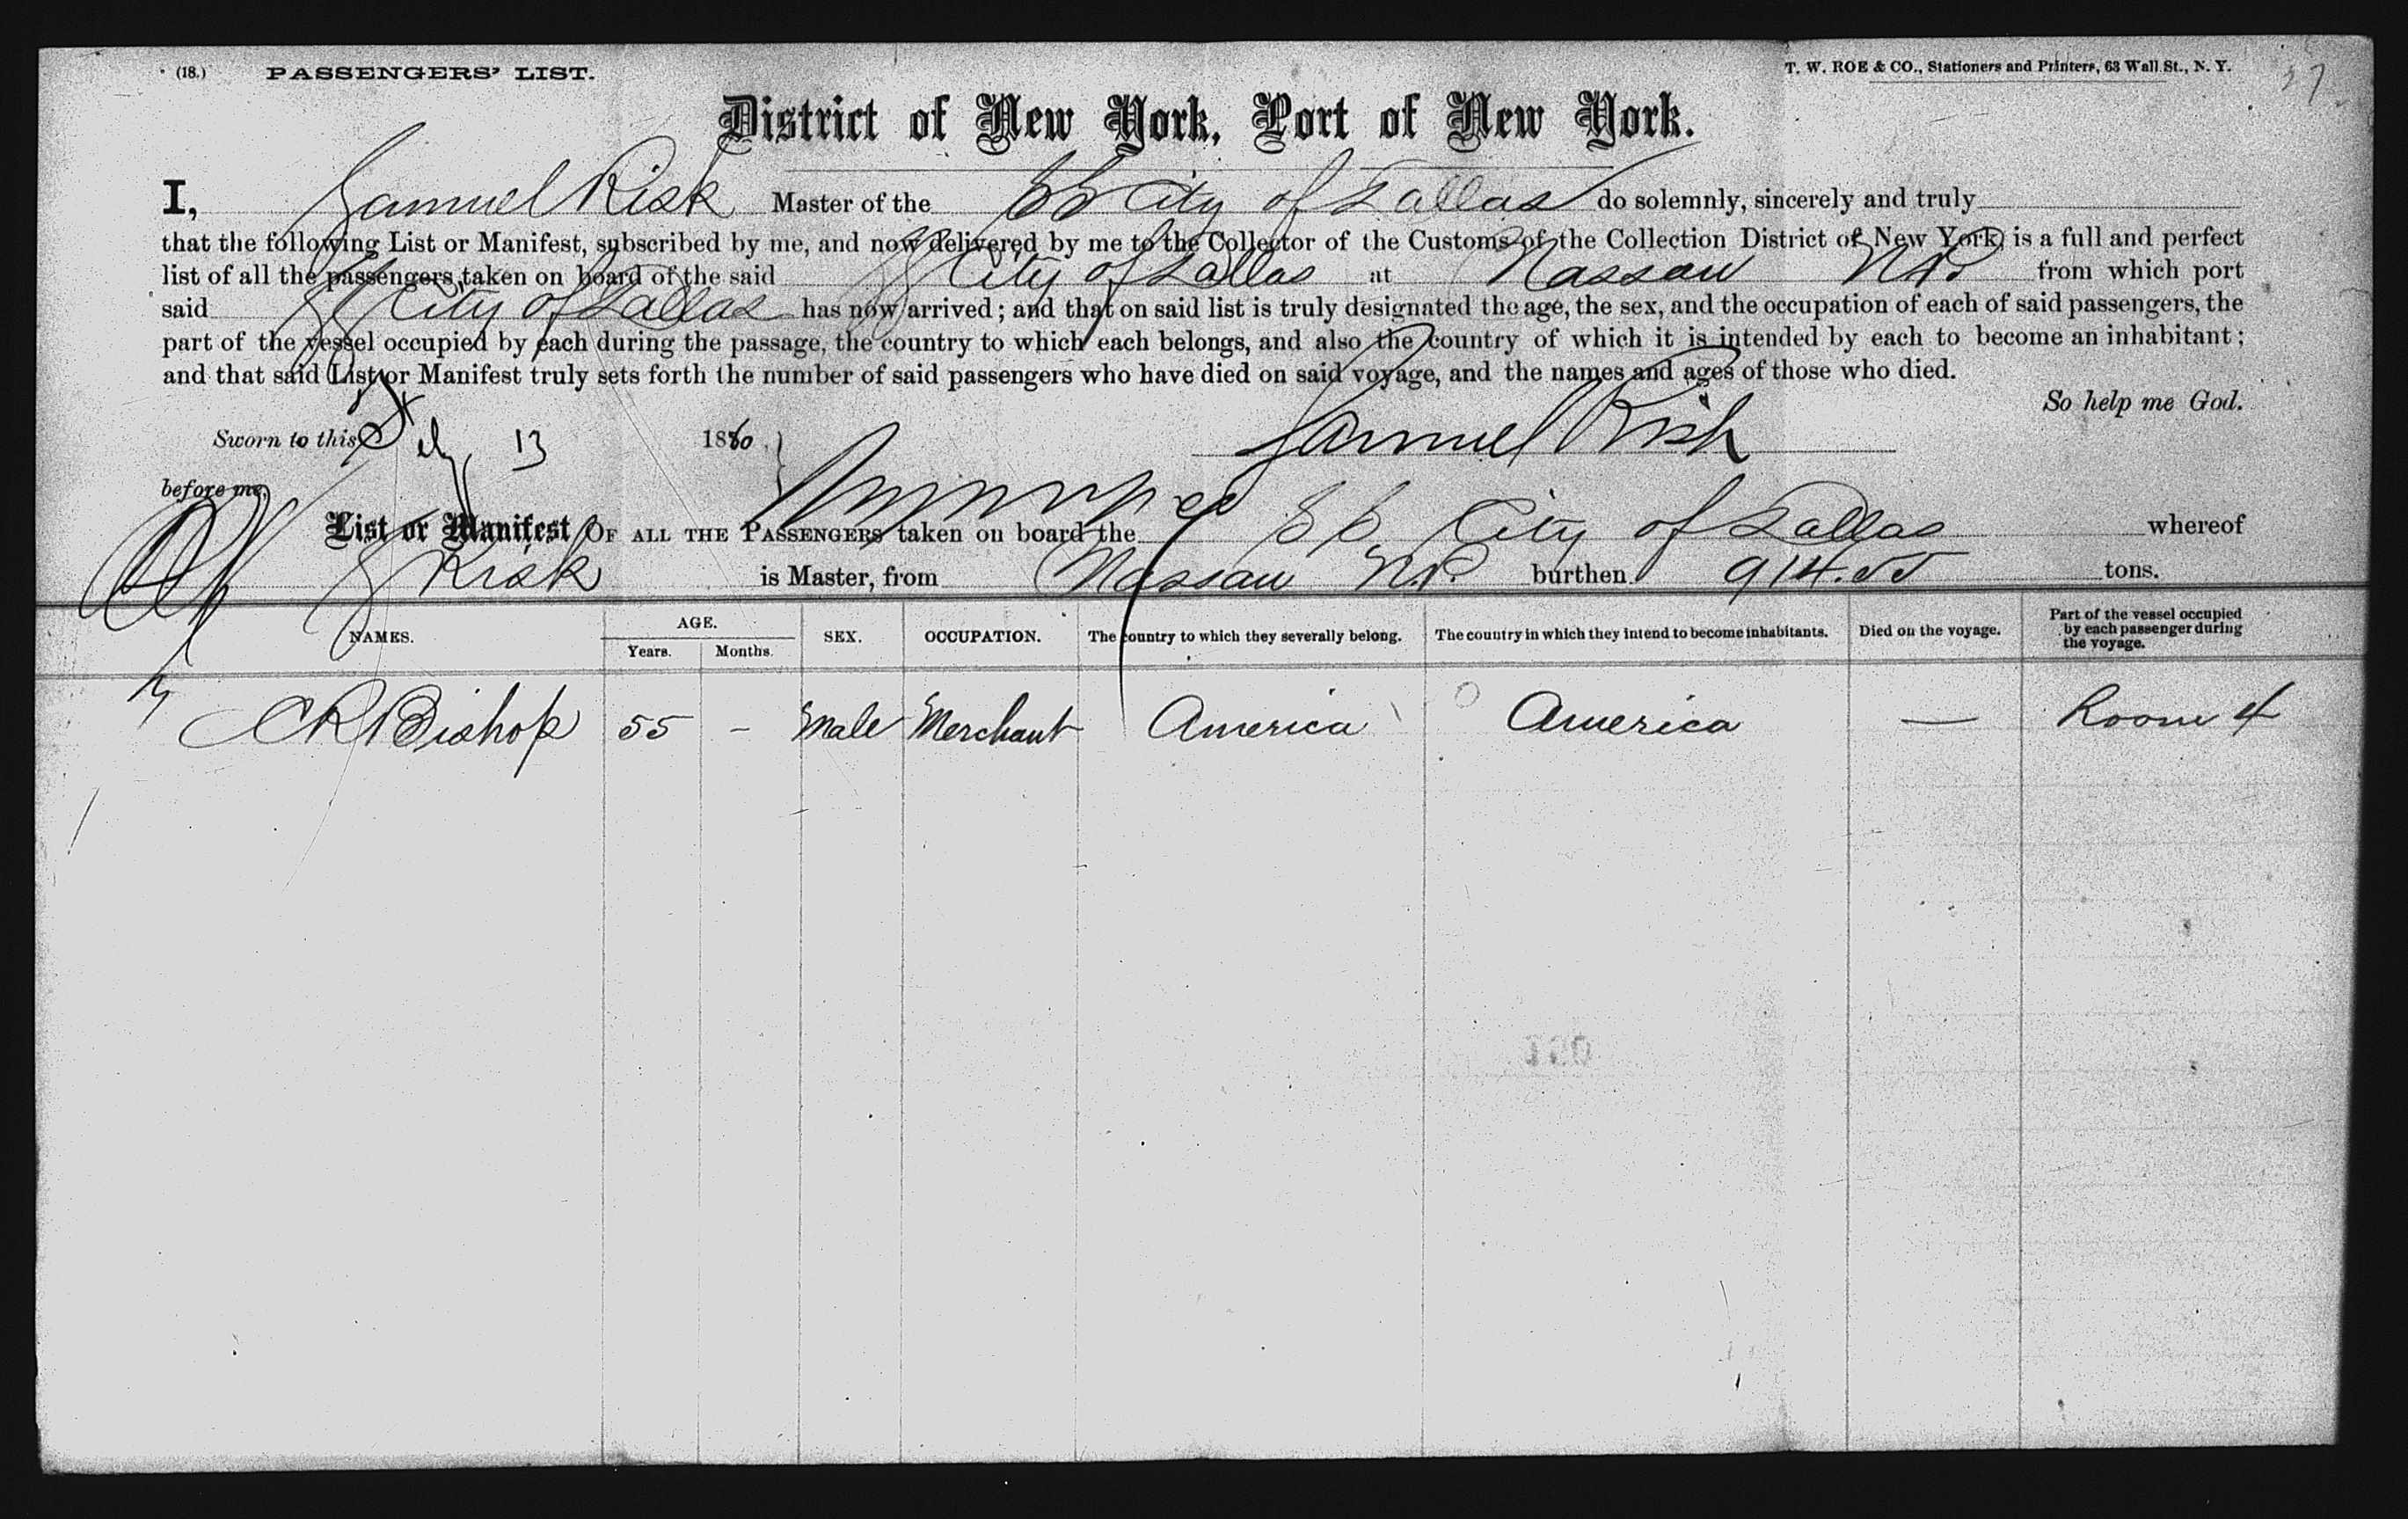 (18.) PASSENGERS' LIST. T. W. ROE & CO., Stationers and Printers, 63 Wall St., N. Y. 37
District of New York, Port of New York.
I, Samuel Risk Master of the SS City of Dallas do solemnly, sincerely and truly
that the following List or Manifest, subscribed by me, and now delivered by me to the Collector of the Customs of the Collection District of New York, is a full and perfect
list of all the passengers taken on board of the said SS City of Dallas at Nassau N.P. from which port
said SS City of Dallas has now arrived; and that on said list is truly designated the age, the sex, and the occupation of each of said passengers, the
part of the vessel occupied by each during the passage, the country to which each belongs, and also the country of which it is intended by each to become an inhabitant;
and that said List or Manifest truly sets forth the number of said passengers who have died on said voyage, and the names and ages of those who died.
So help me God.
Sworn to this 13 1880 Samuel Risk
before me,
List or Manifest OF ALL THE PASSENGERS taken on board the SS City of Dallas whereof
S Risk is Master, from Nassau N.P. burthen 914.55 tons.
NAMES. AGE. Years. Months. SEX. OCCUPATION. The country to which they severally belong. The country in which they intend to become inhabitants. Died on the voyage. Part of the vessel occupied by each passenger during the voyage.
CR Bishop 55 - Male Merchant America America — Room 4